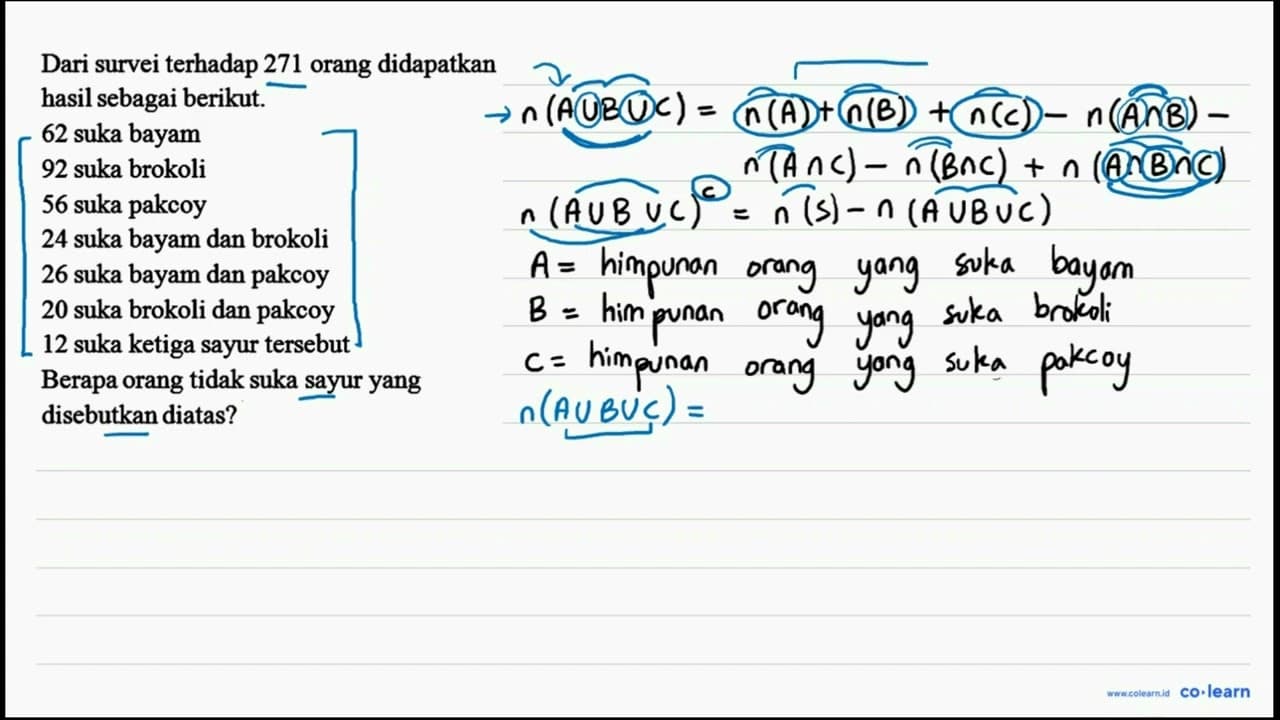 Dari survei terhadap 271 orang didapatkan
hasil sebagai berikut.
62 suka bayam
92 suka brokoli
56 suka pakcoy
24 suka bayam dan brokoli
26 suka bayam dan pakcoy
20 suka brokoli dan pakcoy
12 suka ketiga sayur tersebut
Berapa orang tidak suka sayur yang
disebutkan diatas?
→ n(A∪B∪C) = n(A)+n(B) + n(C) - n(A∩B) -
n(A∩C) - n(B∩C) + n(A∩B∩C)
n(A∪B∪C)ᶜ = n(S) - n(A∪B∪C)
A = himpunan orang yang suka bayam
B = himpunan orang yang suka brokoli
C = himpunan orang yang suka pakcoy
n(A∪B∪C) =
www.colearn.id co·learn